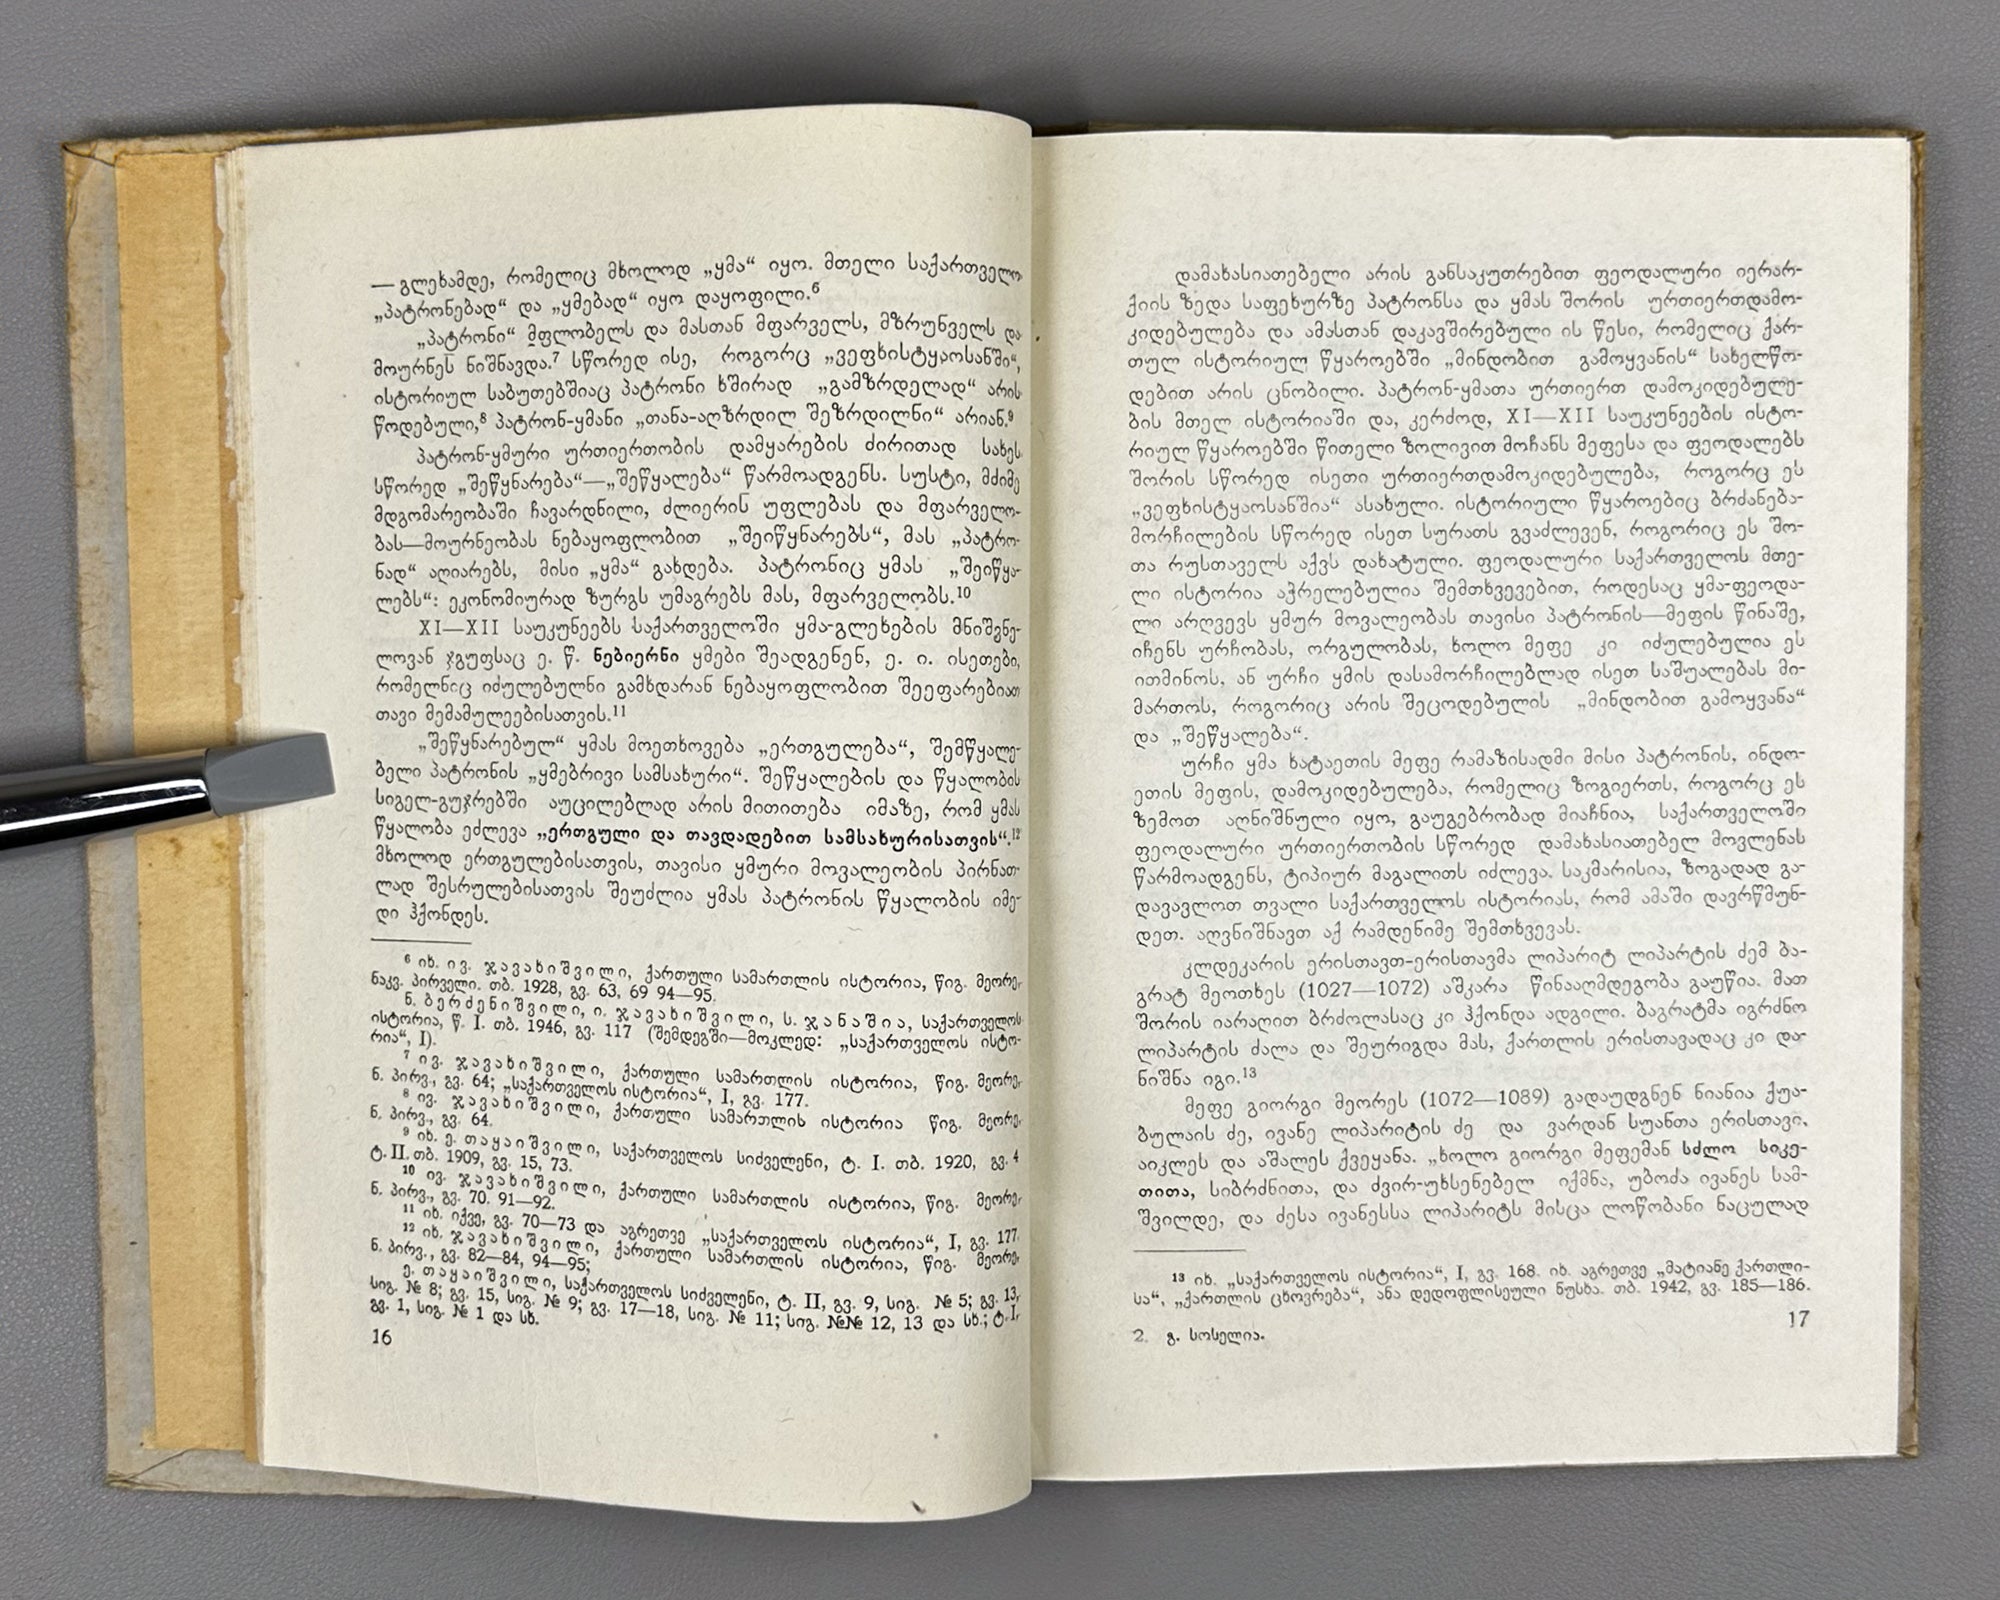 — გლეხამდე, რომელიც მხოლოდ „ყმა“ იყო. მთელი საქართველო
„პატრონებად“ და „ყმებად“ იყო დაყოფილი.⁶
„პატრონი“ მფლობელს და მასთან მფარველს, მზრუნველს და
მოურნეს ნიშნავდა.⁷ სწორედ ისე, როგორც „ვეფხისტყაოსანში“,
ისტორიულ საბუთებშიაც პატრონი ხშირად „გამზრდელად“ არის
წოდებული,⁸ პატრონ-ყმანი „თანა-აღზრდილ შეზრდილნი“ არიან.⁹
პატრონ-ყმური ურთიერთობის დამყარების ძირითად სახეს
სწორედ „შეწყნარება“—„შეწყალება“ წარმოადგენს. სუსტი, მძიმე
მდგომარეობაში ჩავარდნილი, ძლიერის უფლებას და მფარველო-
ბას—მოურნეობას ნებაყოფლობით „შეიწყნარებს“, მას „პატრო-
ნად“ აღიარებს, მისი „ყმა“ გახდება. პატრონიც ყმას „შეიწყა-
ლებს“: ეკონომიურად ზურგს უმაგრებს მას, მფარველობს.¹⁰
XI—XII საუკუნეებს საქართველოში ყმა-გლეხების მნიშვნე-
ლოვან ჯგუფსაც ე. წ. ნებიერნი ყმები შეადგენენ, ე. ი. ისეთები,
რომელნიც იძულებულნი გამხდარან ნებაყოფლობით შეეფარებიათ
თავი მემამულეებისათვის.¹¹
„შეწყნარებულ“ ყმას მოეთხოვება „ერთგულება“, შემწყალე-
ბელი პატრონის „ყმებრივი სამსახური“. შეწყალების და წყალობის
სიგელ-გუჯრებში აუცილებლად არის მითითება იმაზე, რომ ყმას
წყალობა ეძლევა „ერთგული და თავდადებით სამსახურისათვის“.¹²
მხოლოდ ერთგულებისათვის, თავისი ყმური მოვალეობის პირნათ-
ლად შესრულებისათვის შეუძლია ყმას პატრონის წყალობის იმე-
დი ჰქონდეს.
⁶ იხ. ივ. ჯავახიშვილი, ქართული სამართლის ისტორია, წიგ. მეორე,
ნაკვ. პირველი. თბ. 1928, გვ. 63, 69 94—95.
ნ. ბერძენიშვილი, ი. ჯავახიშვილი, ს. ჯანაშია, საქართველოს
ისტორია, წ. I. თბ. 1946, გვ. 117 (შემდეგში—მოკლედ: „საქართველოს ისტო-
რია“, I).
⁷ ივ. ჯავახიშვილი, ქართული სამართლის ისტორია, წიგ. მეორე,
ნ. პირვ., გვ. 64; „საქართველოს ისტორია“, I, გვ. 177.
⁸ ივ. ჯავახიშვილი, ქართული სამართლის ისტორია წიგ. მეორე,
ნ. პირვ., გვ. 64.
⁹ იხ. ე. თაყაიშვილი, საქართველოს სიძველენი, ტ. I. თბ. 1920, გვ. 4
ტ. II. თბ. 1909, გვ. 15, 73.
¹⁰ ივ. ჯავახიშვილი, ქართული სამართლის ისტორია, წიგ. მეორე,
ნ. პირვ., გვ. 70. 91—92.
¹¹ იხ. იქვე, გვ. 70—73 და აგრეთვე „საქართველოს ისტორია“, I, გვ. 177.
¹² იხ. ჯავახიშვილი, ქართული სამართლის ისტორია, წიგ. მეორე,
ნ. პირვ., გვ. 82—84, 94—95;
ე. თაყაიშვილი, საქართველოს სიძველენი, ტ. II, გვ. 9, სიგ. № 5; გვ. 13,
სიგ. № 8; გვ. 15, სიგ. № 9; გვ. 17—18, სიგ. № 11; სიგ. №№ 12, 13 და სხ.; ტ. I,
გვ. 1, სიგ. № 1 და სხ.
16
დამახასიათებელი არის განსაკუთრებით ფეოდალური იერარ-
ქიის ზედა საფეხურზე პატრონსა და ყმას შორის ურთიერთდამო-
კიდებულება და ამასთან დაკავშირებული ის წესი, რომელიც ქარ-
თულ ისტორიულ წყაროებში „მინდობით გამოყვანის“ სახელწო-
დებით არის ცნობილი. პატრონ-ყმათა ურთიერთ დამოკიდებულე-
ბის მთელ ისტორიაში და, კერძოდ, XI—XII საუკუნეების ისტო-
რიულ წყაროებში წითელი ზოლივით მოჩანს მეფესა და ფეოდალებს
შორის სწორედ ისეთი ურთიერთდამოკიდებულება, როგორც ეს
„ვეფხისტყაოსანშია“ ასახული. ისტორიული წყაროებიც ბრძანება-
მორჩილების სწორედ ისეთ სურათს გვაძლევენ, როგორიც ეს შო-
თა რუსთაველს აქვს დახატული. ფეოდალური საქართველოს მთე-
ლი ისტორია აჭრელებულია შემთხვევებით, როდესაც ყმა-ფეოდა-
ლი არღვევს ყმურ მოვალეობას თავისი პატრონის—მეფის წინაშე,
იჩენს ურჩობას, ორგულობას, ხოლო მეფე კი იძულებულია ეს
ითმინოს, ან ურჩი ყმის დასამორჩილებლად ისეთ საშუალებას მი-
მართოს, როგორიც არის შეცოდებულის „მინდობით გამოყვანა“
და „შეწყალება“.
ურჩი ყმა ხატაეთის მეფე რამაზისადმი მისი პატრონის, ინდო-
ეთის მეფის, დამოკიდებულება, რომელიც ზოგიერთს, როგორც ეს
ზემოთ აღნიშნული იყო, გაუგებრობად მიაჩნია, საქართველოში
ფეოდალური ურთიერთობის სწორედ დამახასიათებელ მოვლენას
წარმოადგენს, ტიპიურ მაგალითს იძლევა. საკმარისია, ზოგადად გა-
დავავლოთ თვალი საქართველოს ისტორიას, რომ ამაში დავრწმუნ-
დეთ. აღვნიშნავთ აქ რამდენიმე შემთხვევას.
კლდეკარის ერისთავთ-ერისთავმა ლიპარიტ ლიპარტის ძემ ბა-
გრატ მეოთხეს (1027—1072) აშკარა წინააღმდეგობა გაუწია. მათ
შორის იარაღით ბრძოლასაც კი ჰქონდა ადგილი. ბაგრატმა იგრძნო
ლიპარტის ძალა და შეურიგდა მას, ქართლის ერისთავადაც კი და-
ნიშნა იგი.¹³
მეფე გიორგი მეორეს (1072—1089) გადაუდგნენ ნიანია ქუა-
ბულაის ძე, ივანე ლიპარიტის ძე და ვარდან სუანთა ერისთავი.
აიკლეს და აშალეს ქვეყანა. „ხოლო გიორგი მეფემან სძლო სიკე-
თითა, სიბრძნითა, და ძვირ-უხსენებელ იქმნა, უბოძა ივანეს სამ-
შვილდე, და ძესა ივანესსა ლიპარიტს მისცა ლოწობანი ნაცულად
¹³ იხ. „საქართველოს ისტორია“, I, გვ. 168. იხ. აგრეთვე „მატიანე ქართლი-
სა“, „ქართლის ცხოვრება“, ანა დედოფლისეული ნუსხა. თბ. 1942, გვ. 185—186.
2. გ. სოსელია.
17